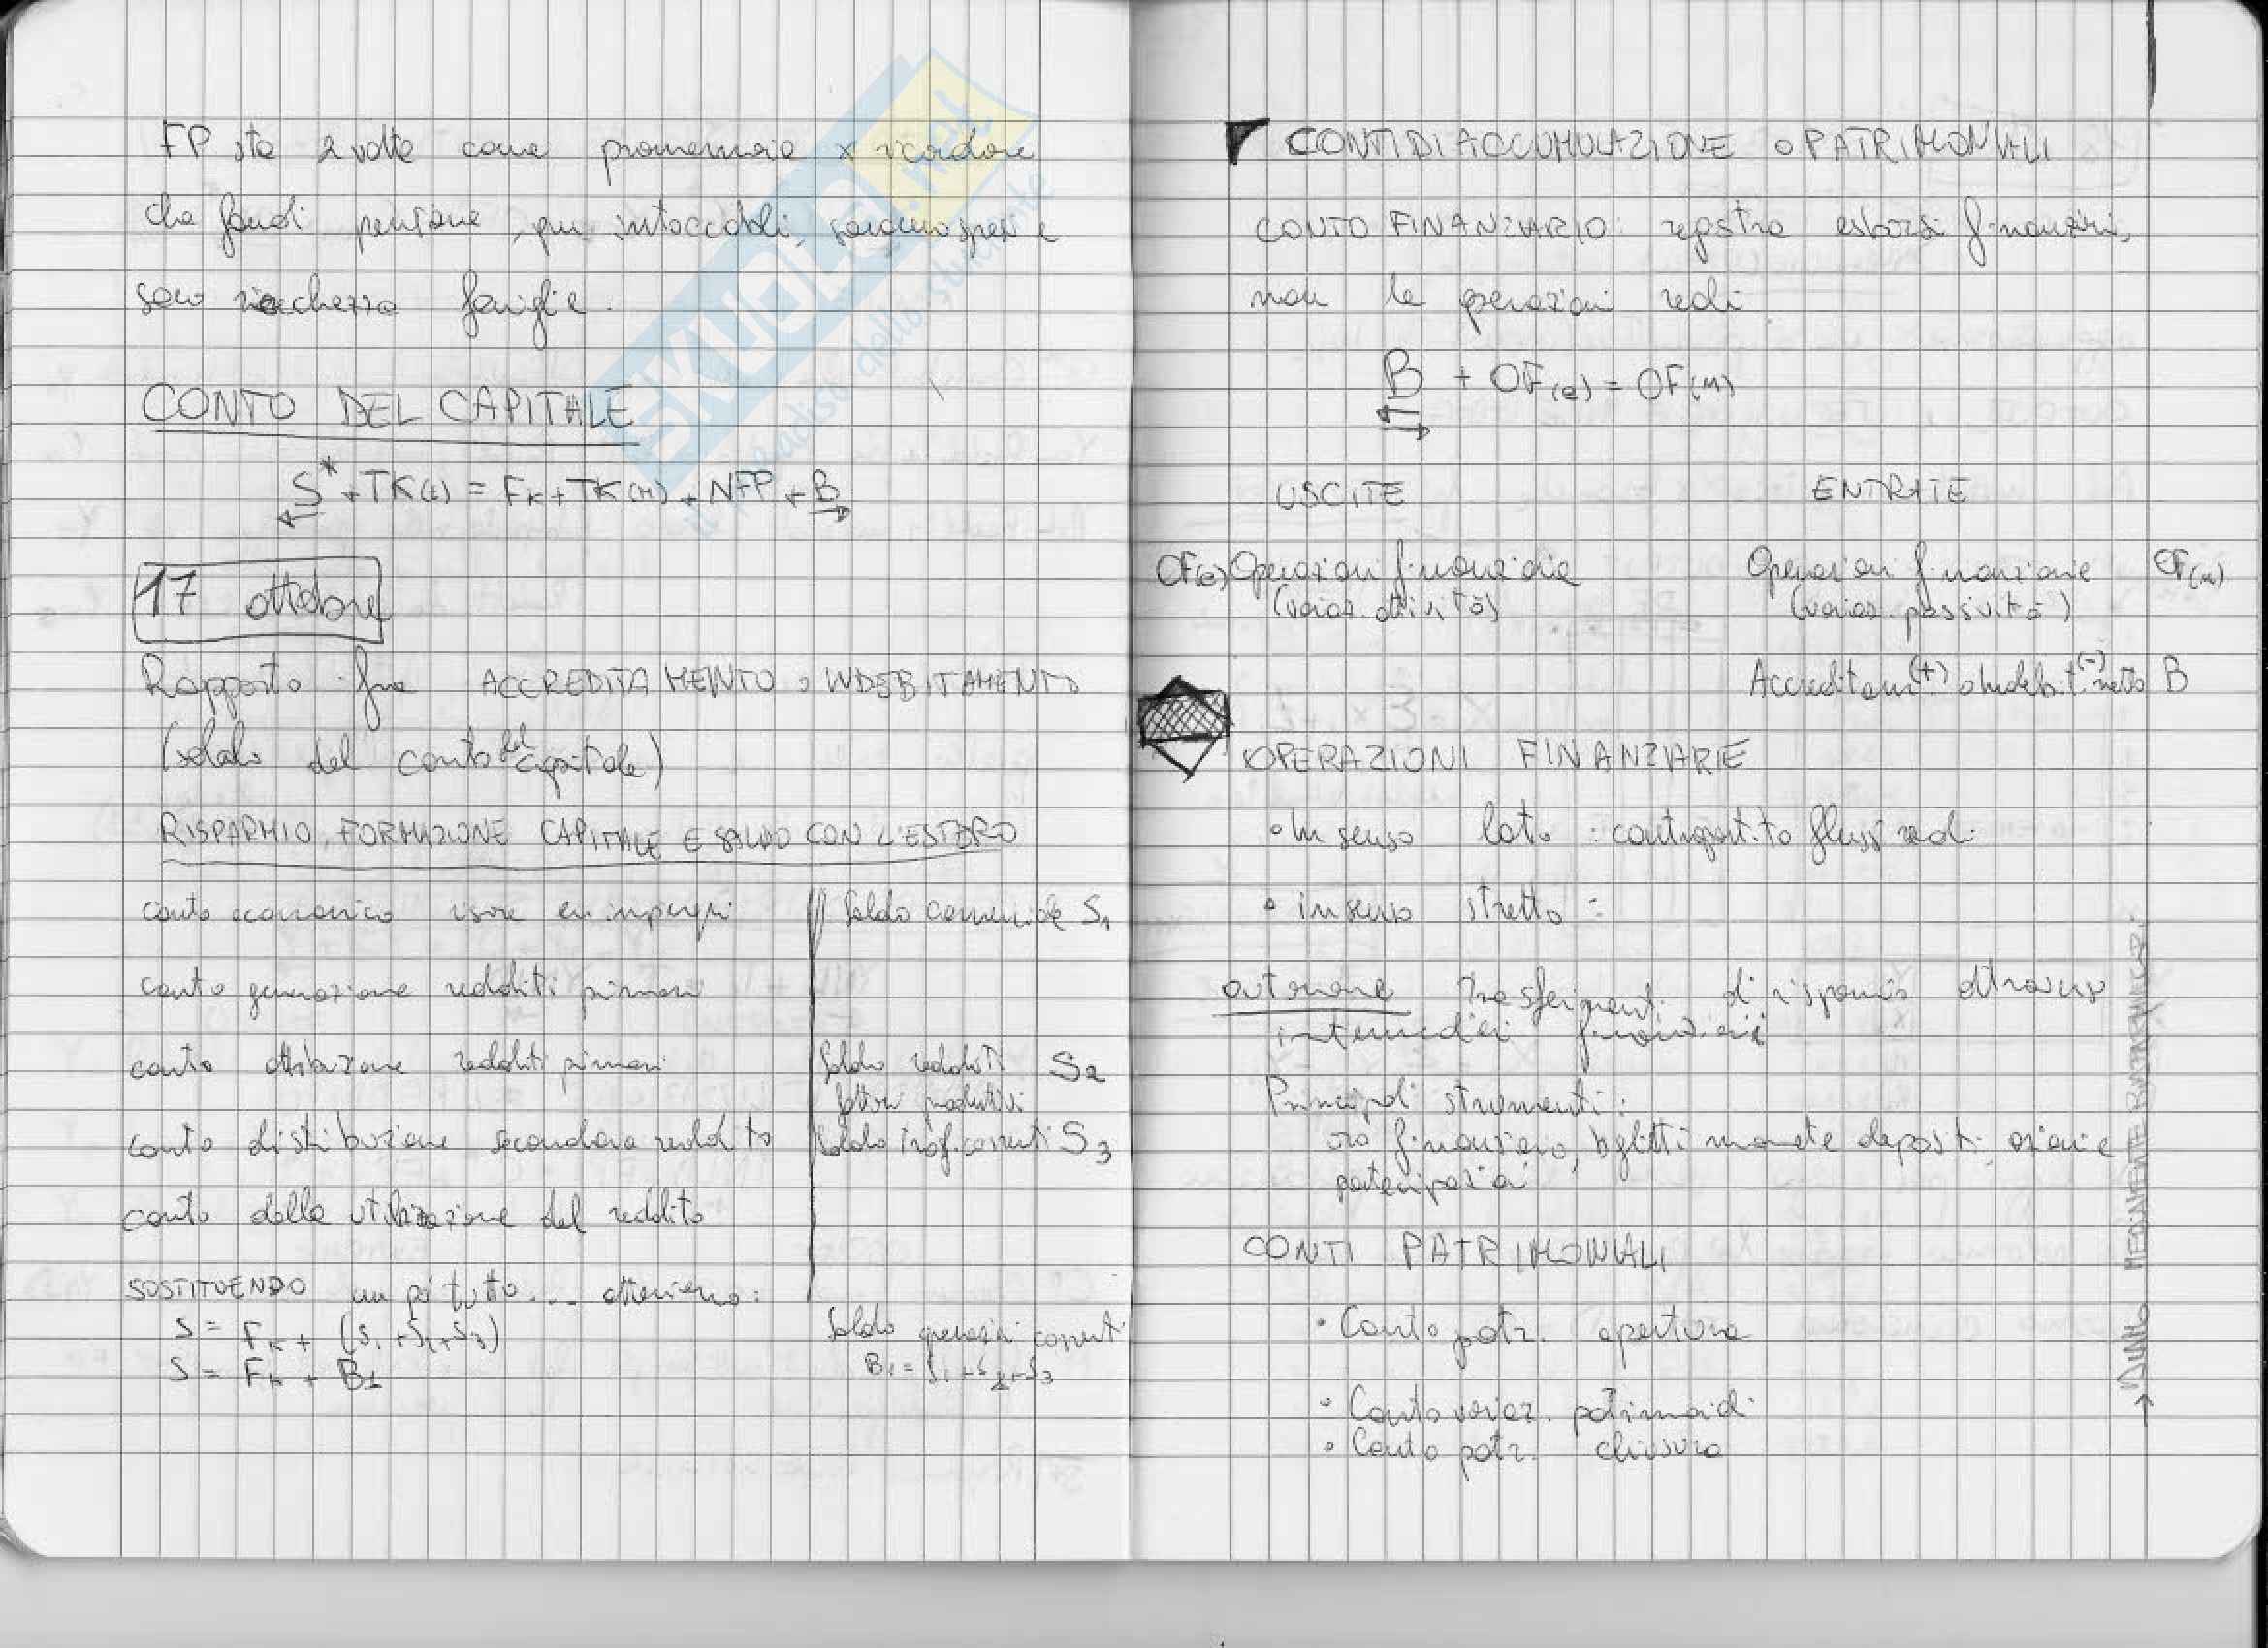 FP sta 2 volte come promemoria x ricordare
che fondi pensione, pur intoccabili, saranno spesi e
sono ricchezza famiglie.
CONTO DEL CAPITALE
S* + TK(E) = FK + TK(U) + NFP + B
17 ottobre
Rapporto fra ACCREDITAMENTO o INDEBITAMENTO
(saldo del conto del capitale)
RISPARMIO, FORMAZIONE CAPITALE E SALDO CON L'ESTERO
conto economico risorse ed impieghi
Saldo commerciale S1
conto generazione redditi primari
conto attribuzione redditi primari
Saldo redditi S2
fattori produttivi
conto distribuzione secondaria reddito
Saldo trasf. correnti S3
conto della utilizzazione del reddito
SOSTITUENDO un po' tutto... otteniamo:
S = FK + (S1 + S2 + S3)
S = FK + B1
Saldo operazioni correnti
B1 = S1 + S2 + S3
CONTI DI ACCUMULAZIONE O PATRIMONIALI
CONTO FINANZIARIO: registra esborsi finanziari,
non le operazioni reali
B + OF(e) = OF(u)
USCITE
ENTRATE
OF(e) Operazioni finanziarie
(variaz. attività)
Operazioni finanziarie OF(u)
(variaz. passività)
Accreditam.(+) o Indebit.(-) netto B
OPERAZIONI FINANZIARIE
• In senso lato: contropartita flussi reali
• in senso stretto:
autonome trasferimenti di risparmio attraverso
intermediari finanziari
Principali strumenti:
oro finanziario, biglietti monete depositi, azioni e
partecipazioni
CONTI PATRIMONIALI
• Conto patr. apertura
• Conto variaz. patrimoniali
• Conto patr. chiusura
MEDIAMENTE
SKUOLA.net
il paradiso dello studente